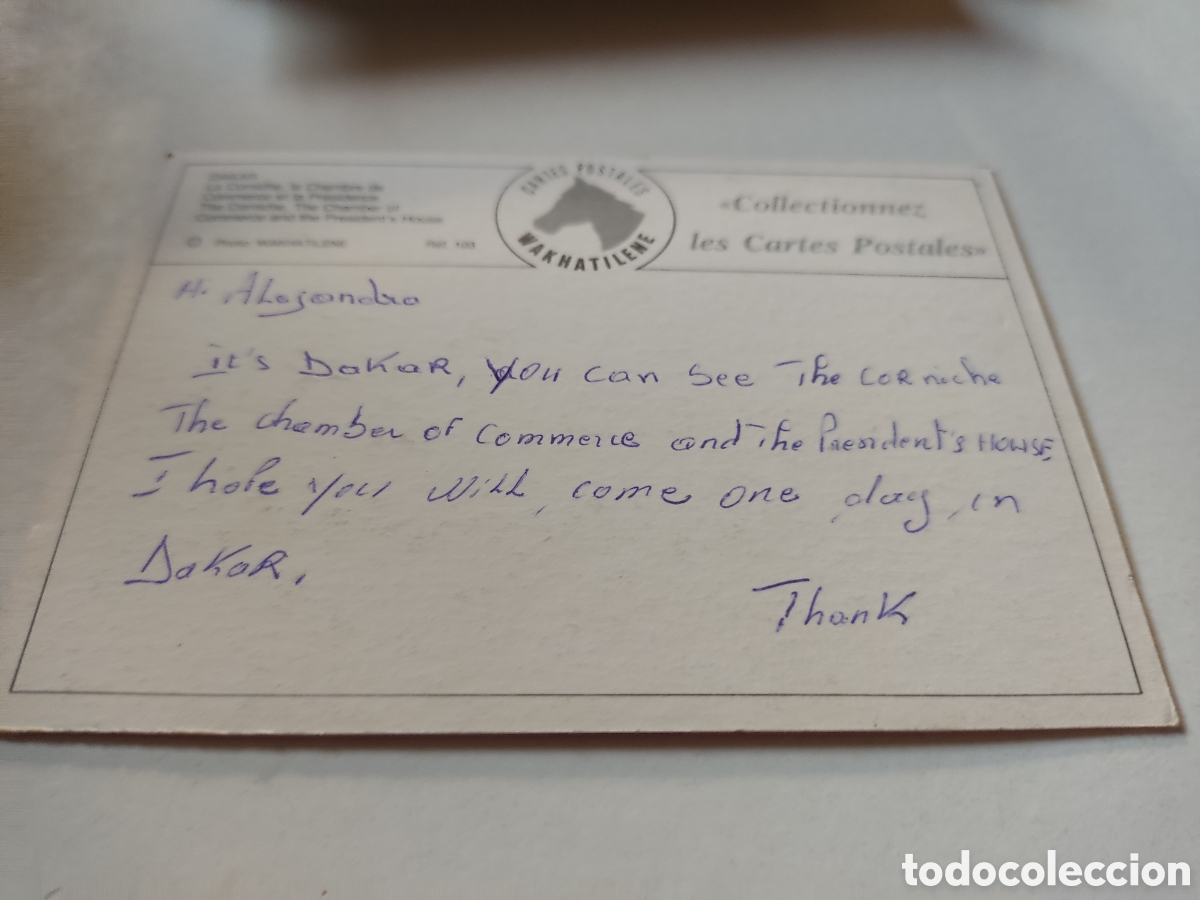 DAKAR
La Corniche, la Chambre de
Commerce et la Présidence
The Corniche, The Chamber of
Commerce and the President's House
© Photo WAKHATILENE Réf. 103
CARTES POSTALES
WAKHATILENE
«Collectionnez
les Cartes Postales»
Hi Alejandro
It's DaKaR, you can see The CoRniche
The chamber of commerce and The President's HOUSE,
I hope you will, come one day, in
DaKaR.
ThanK
todocoleccion